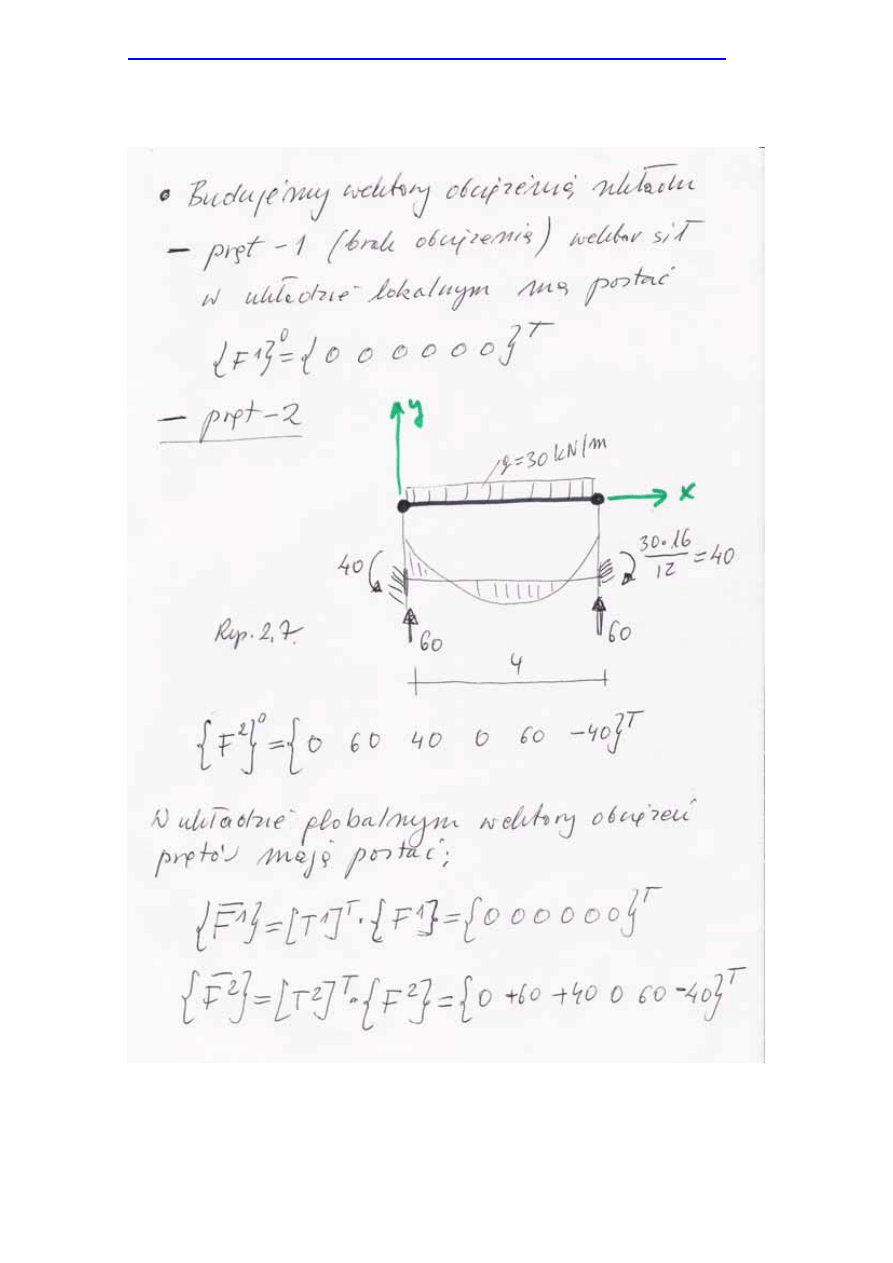 • Budujemy wektory obciążenia układu
– pręt - 1 (brak obciążenia) wektor sił
w układzie lokalnym ma postać
{F1}⁰={0 0 0 0 0 0}ᵀ
– pręt - 2
y
q=30 kN/m
x
40
30•16/12=40
60
60
Rys. 2,7.
4
{F²}⁰={0 60 40 0 60 -40}ᵀ
W układzie globalnym wektory obciążeń
prętów mają postać;
{F̅1}=[T1]ᵀ·{F1}={0 0 0 0 0 0}ᵀ
{F̅2}=[T2]ᵀ·{F2}={0 +60 +40 0 60 -40}ᵀ